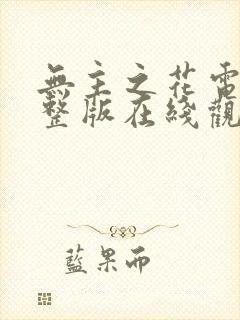 無主之花電
整版在綫觀
藍果而